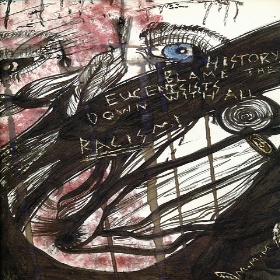 HISTORY
BLAME THE
EUGENISISTS
DOWN WITH ALL
RACISM!